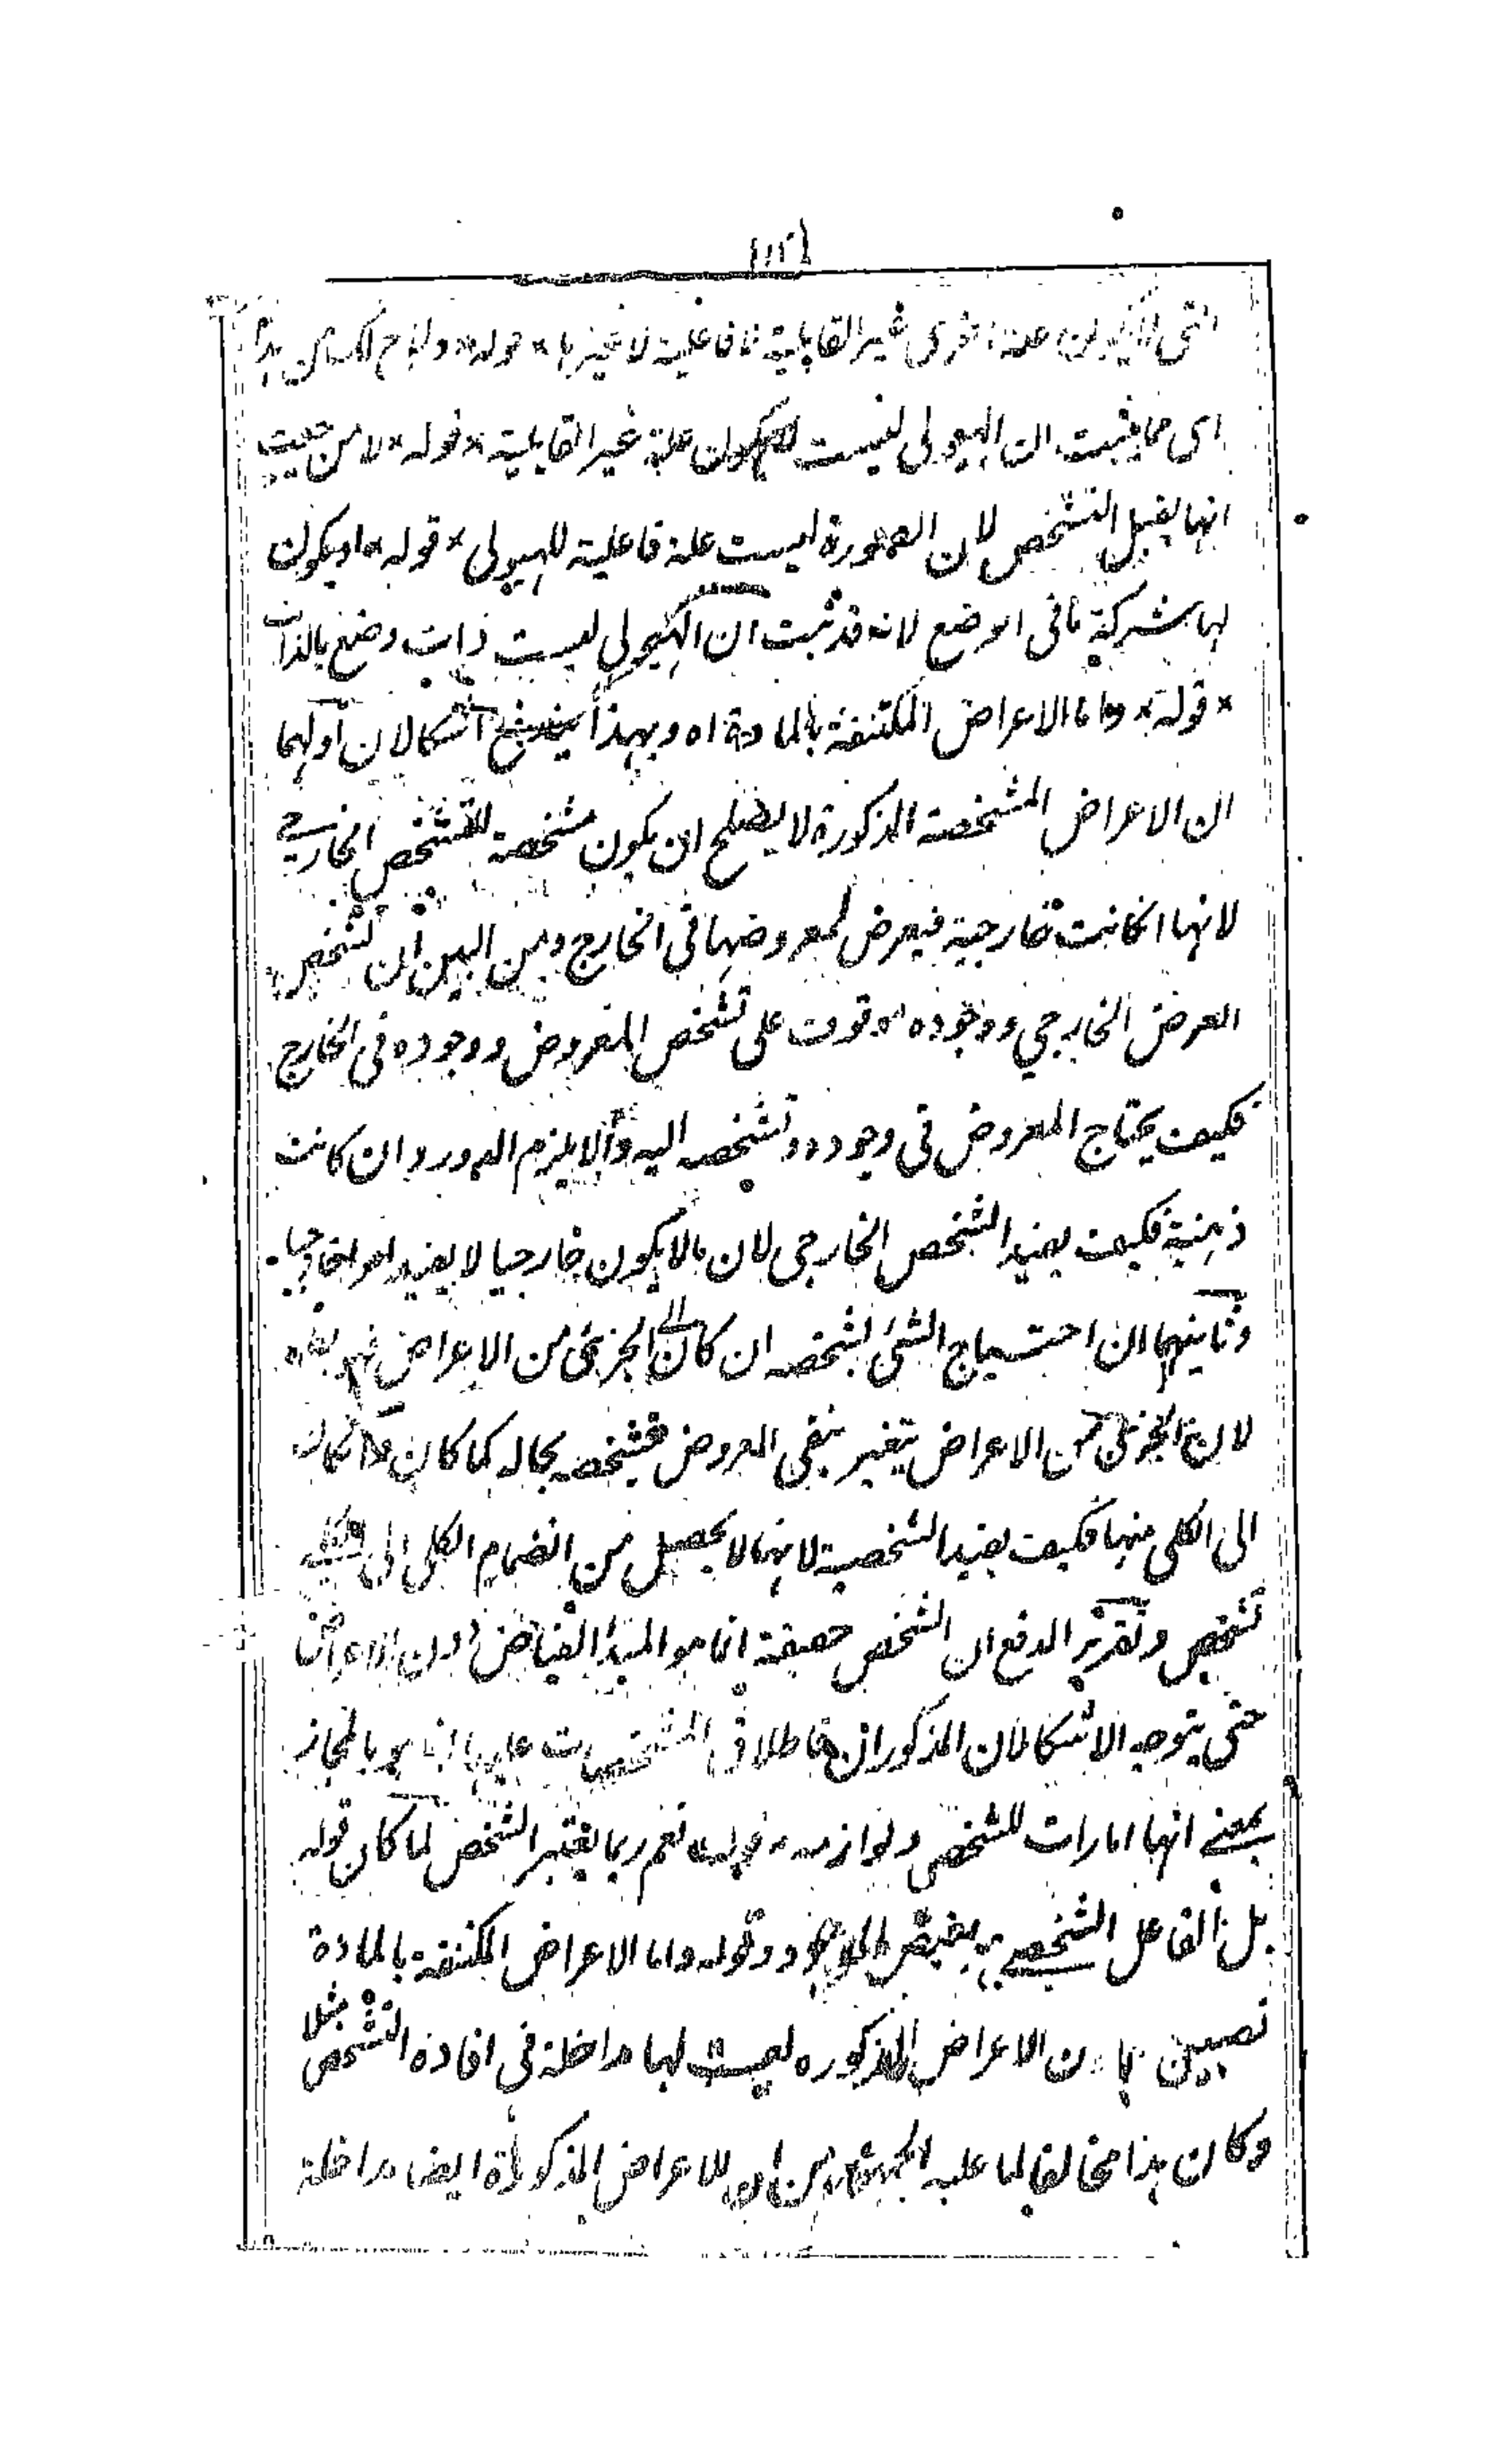 غير القابلية لا فاعلية لا غيرها * قوله *
اى مما يثبت ان الهيولى ليست تكون علة غير القابلية * قوله * لا من حيث
انها يقبل التشخص لان الصورة ليست علة فاعلية للهيولى * قوله * اويكون
لها بشركة ما فى الوضع لانه قد ثبت ان الهيولى ليست ذات وضع بالذات
* قوله * واما الاعراض المكتنفة بالمادة اه وبهذا يندفع اشكالان اولهما
ان الاعراض المشخصة المذكورة لا يصلح ان يكون مشخصة للتشخص الخارجى
لانها اكانت خارجية فيعرض لمعروضها فى الخارج ومن البين ان تشخص
العرض الخارجى ووجوده موقوف على تشخص المعروض ووجوده فى الخارج
فكيف يحتاج المعروض فى وجوده وتشخصه اليه والا يلزم الدور وان كانت
ذهنية فكيف يفيد الشخص الخارجى لان مالا يكون خارجيا لا يفيد امرا خارجيا
وثانيهما ان احتياج الشئ لتشخصه ان كان الى الجزئى من الاعراض
لان الجزئى من الاعراض يتغير بنفى المعروض فتشخصه بحاله كما كان
الى الكلى منها فكيف يفيد الشخصية لانها لا يحصل من انضمام الكلى الى
تشخص وتقرير الدفع ان الشخص حقيقة انما هو المبدأ الفياض دون الاعراض
حتى يتوجه الاشكالان المذكوران فاطلاق المشخصات عليها انما هو بالمجاز
بمعنے انها امارات للشخص ولوازمه * قوله * نعم ربما يعتبر الشخص لما كان قوله
بل الفاعل الشخصے يفيض الوجود وقوله واما الاعراض المكتنفة بالمادة
ن الاعراض المذكوره ليست لها مداخلة فى افادة التشخص مثلا
وكان هذا مخالفا لما عليه الجمهور من ان للاعراض المذكورة ايضا مداخلة